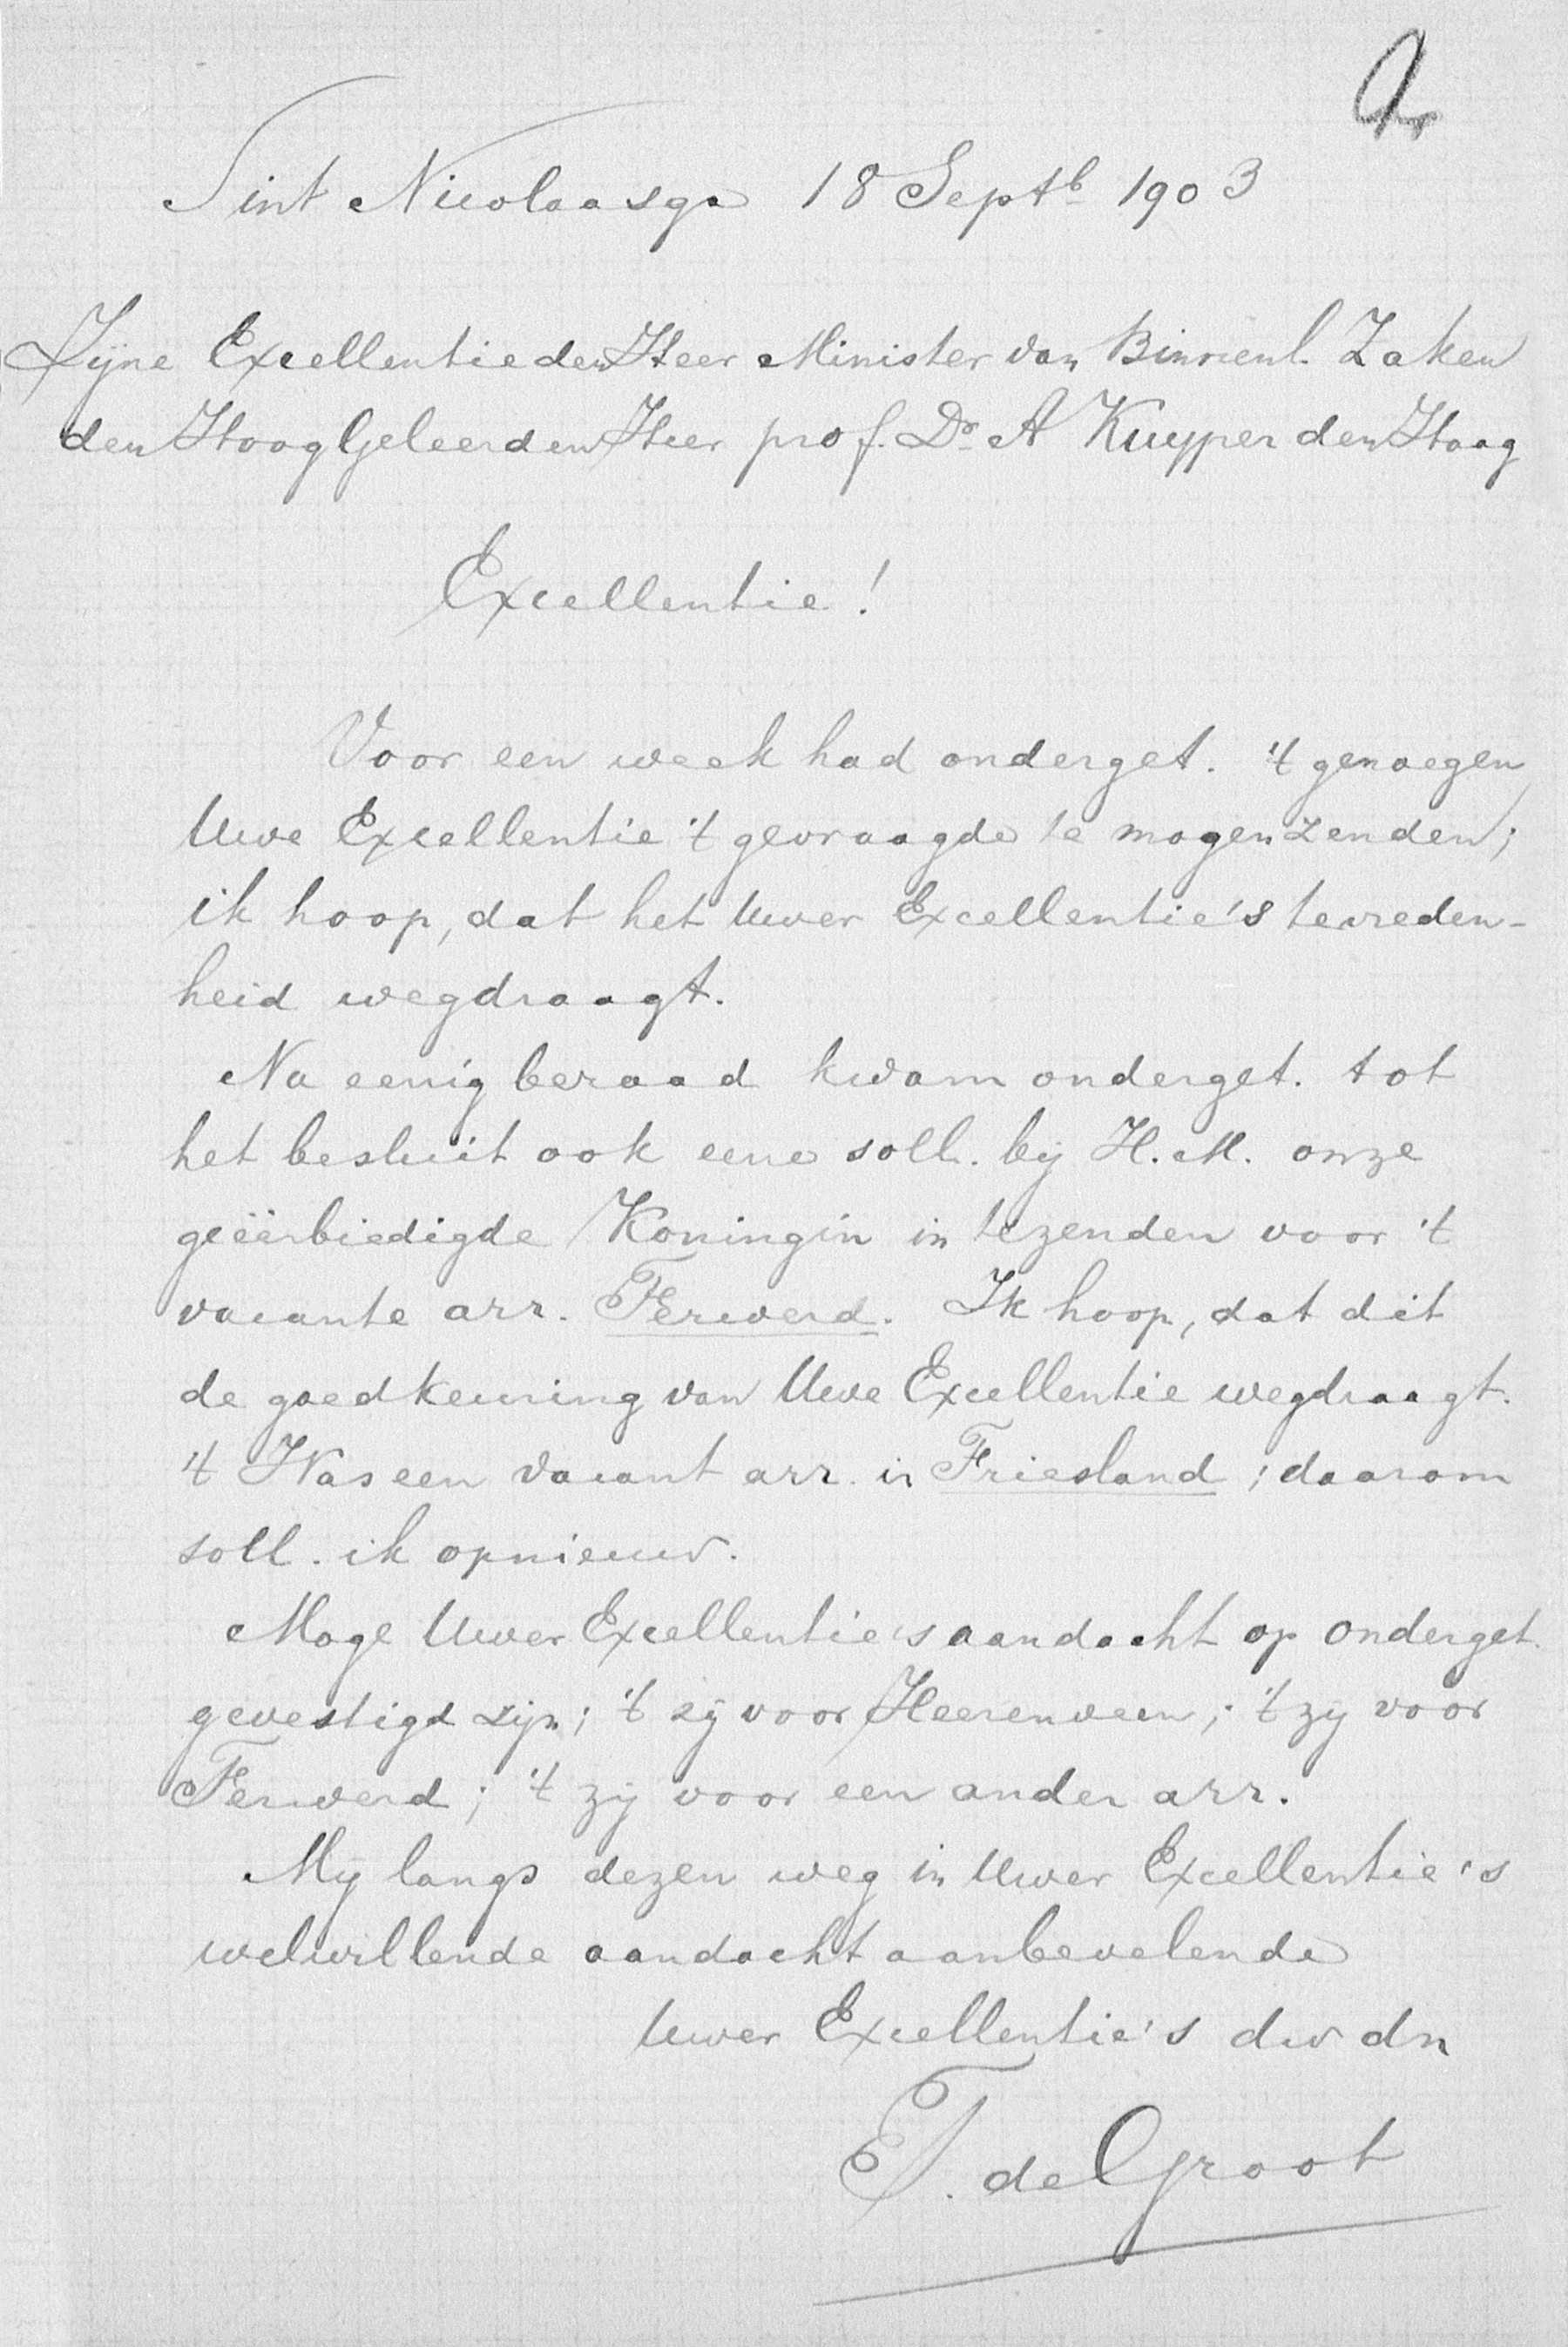 Sint Nicolaasga 18 Septb 1903
Zijne Excellentie den Heer Minister van Binnenl. Zaken
den HoogGeleerden Heer prof. Dr A Kuyper den Haag
Excellentie!
Voor een week had onderget. 't genoegen
Uwe Excellentie 't gevraagde te mogen zenden;
ik hoop, dat het Uwer Excellentie's tevreden-
heid wegdraagt.
Na eenig beraad kwam onderget. tot
het besluit ook eene soll. bij H.M. onze
geëerbiedigde Koningin in te zenden voor 't
vacante arr. Ferwerd. Ik hoop, dat dit
de goedkeuring van Uwe Excellentie wegdraagt.
't Was een vacant arr. in Friesland; daarom
soll. ik opnieuw.
Moge Uwer Excellentie's aandacht op onderget.
gevestigd zijn; 't zij voor Heerenveen; 't zij voor
Ferwerd; 't zij voor een ander arr.
Mij langs dezen weg in Uwer Excellentie's
welwillende aandacht aanbevelende
Uwer Excellentie's dw dn
T. de Groot